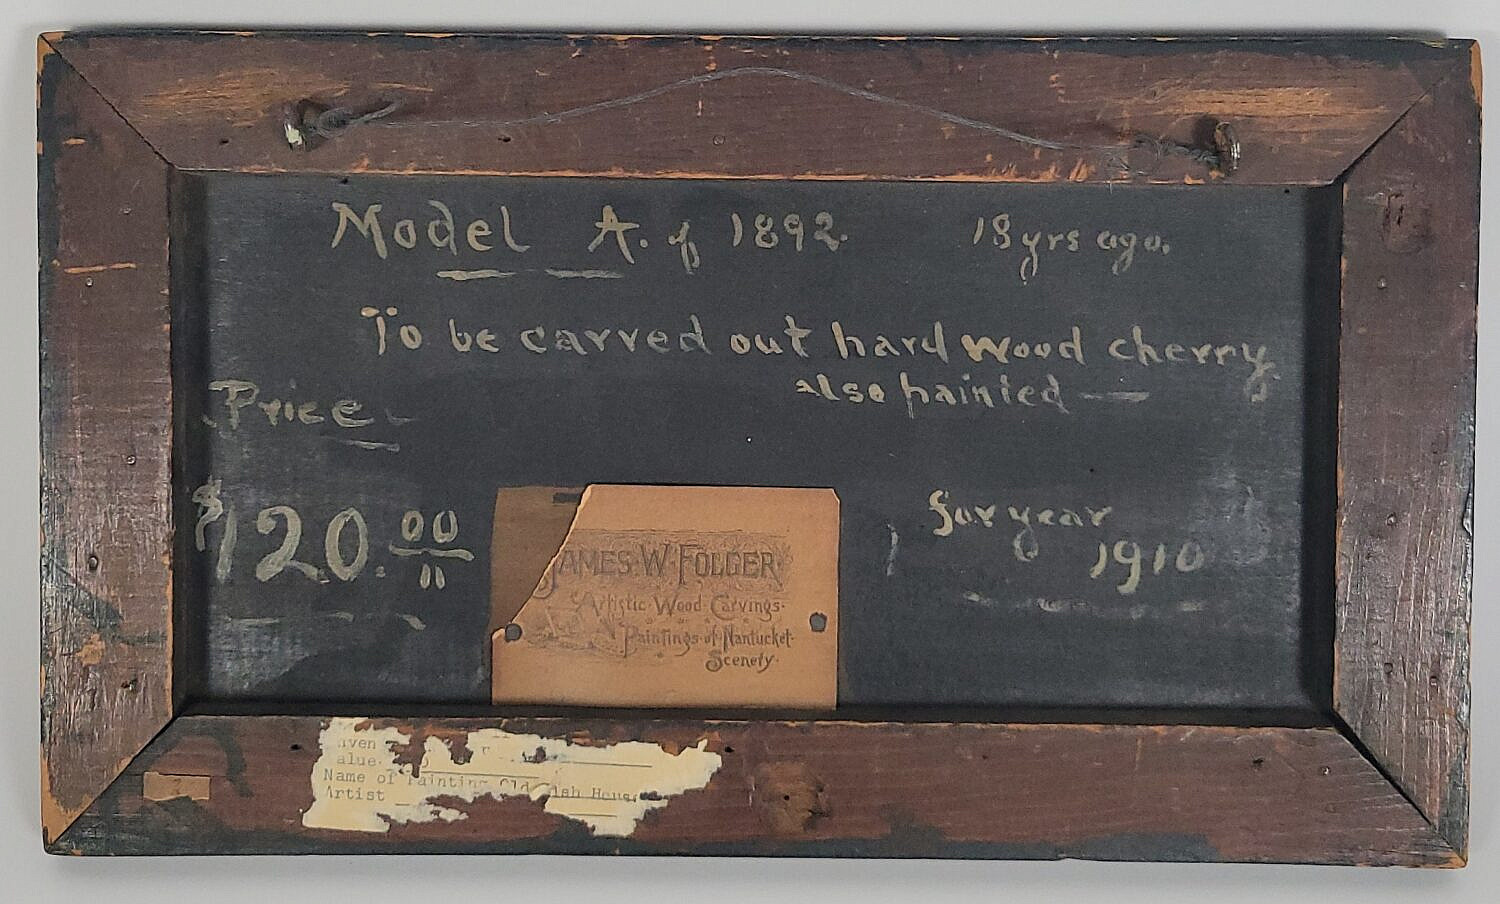 Model A. of 1892. 18 yrs ago.
To be carved out hard wood cherry
also painted —
Price
$120.00
for year
1910
JAMES·W·FOLGER
Artistic·Wood·Carvings·
Paintings·of·Nantucket·
Scenery·
iven
alue
Name of Painting Old ish House
Artist